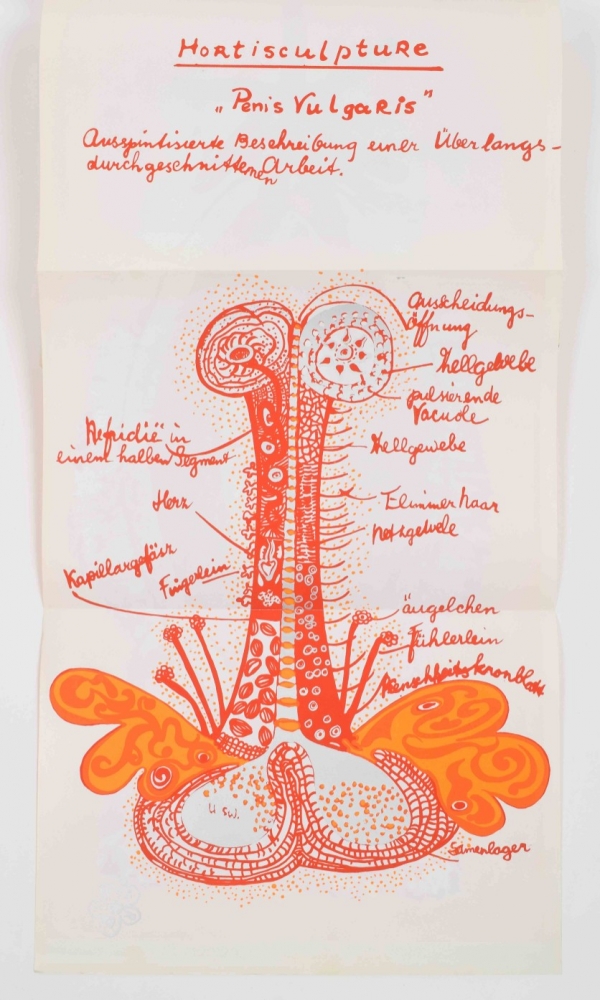 Hortisculpture
„Penis Vulgaris"
Ausspintisierte Beschreibung einer Überlangs-
durchgeschnittenen Arbeit.
Ausscheidungs-
öffnung
Zellgewebe
pulsierende
Vacuole
Nefridië in
einem halben Segment
Zellgewebe
Herz
Flimmerhaar
Kapillargefäss
Fingerlein
äugelchen
Fühlerlein
Menschheitskronblatt
u sw.
Samenlager